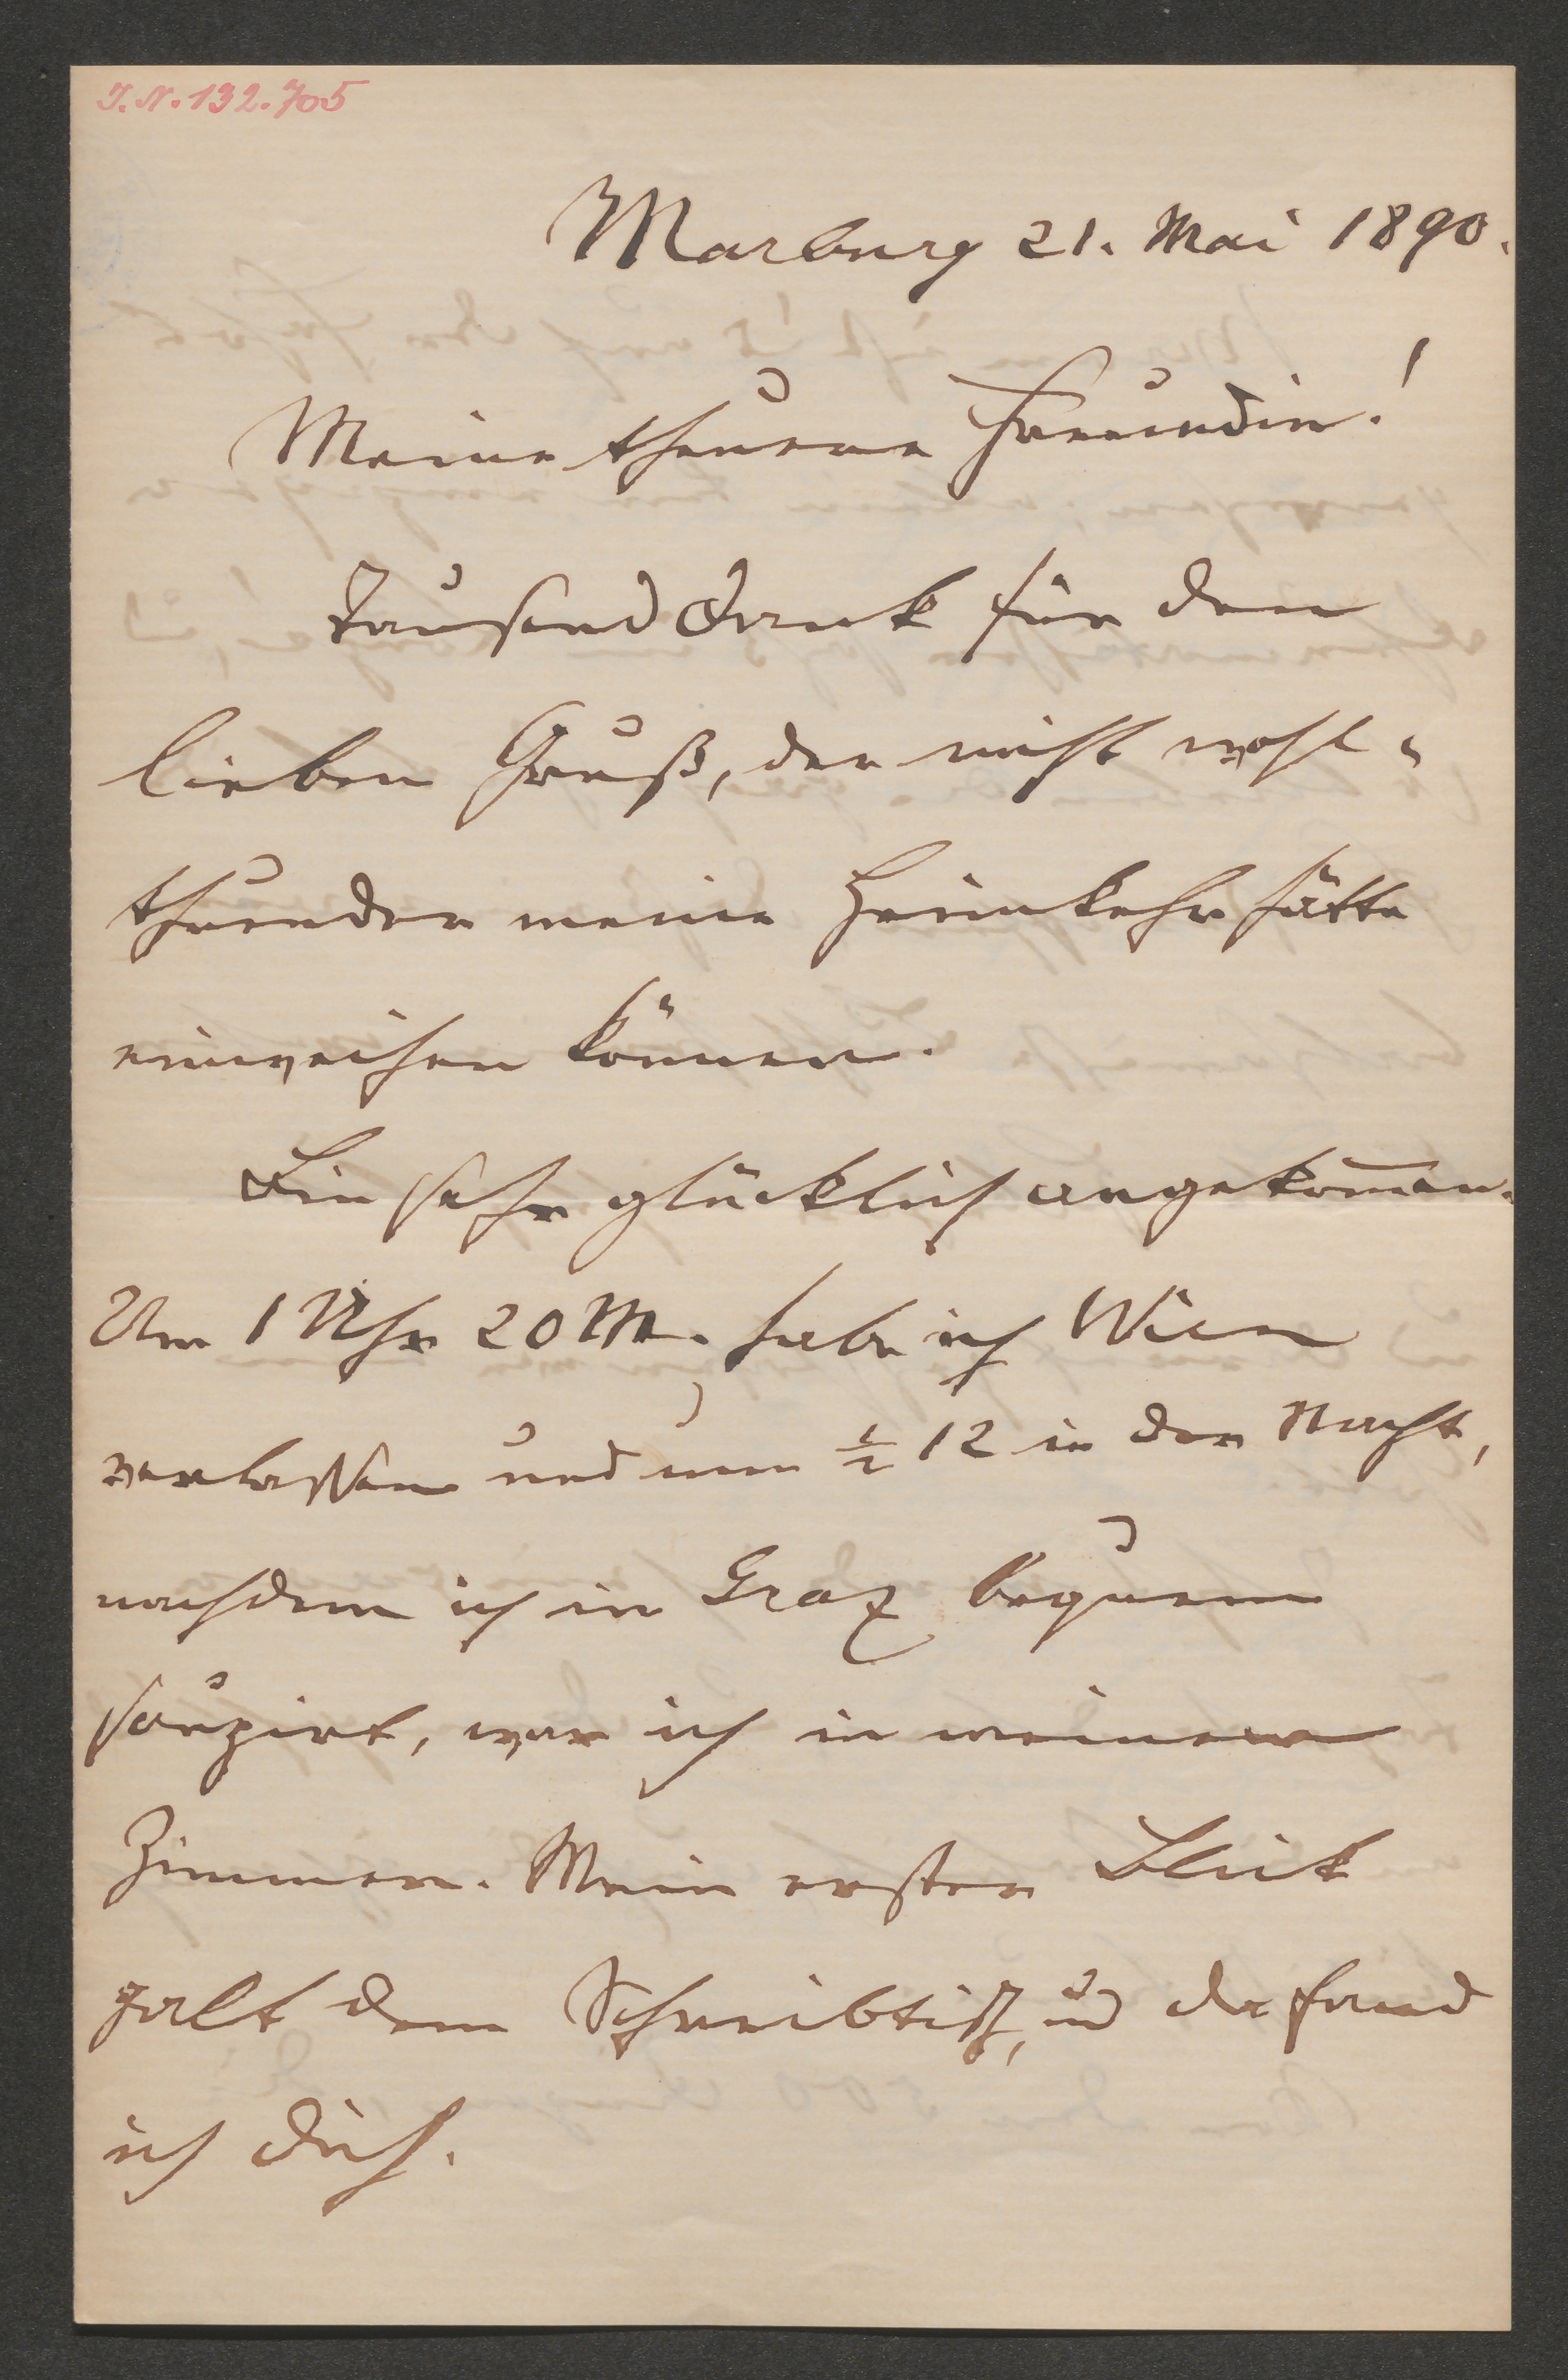 I. N. 132.705
Marburg 21. Mai 1890.
Meine theuere Freundin!
Tausend Dank für den
lieben Gruß, der nicht wohl-
thuender meine Heimkehr hätte
einweihen können.
Bin sehr glücklich angekom̅en.
Um 1 Uhr 20 M. habe ich Wien
verlassen und um ½ 12 in der Nacht,
nachdem ich in Graz bequem
soupirt, war ich in meinem
Zimmer. Mein erster Blick
galt dem Schreibtisch, ud da fand
ich Dich.